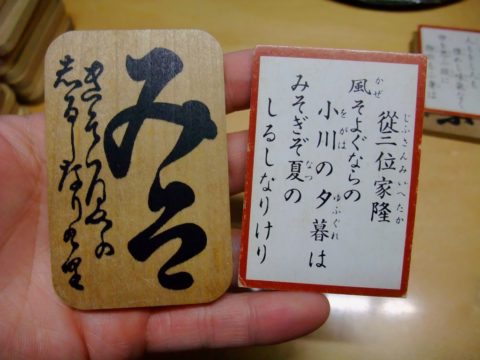 みそ
きそ夏の
志るしなりけ里
從二位家隆
じふさんみ いへたか
風そよぐならの
かぜ
小川の夕暮は
をがは ゆふぐれ
みそぎぞ夏の
なつ
しるしなりけり